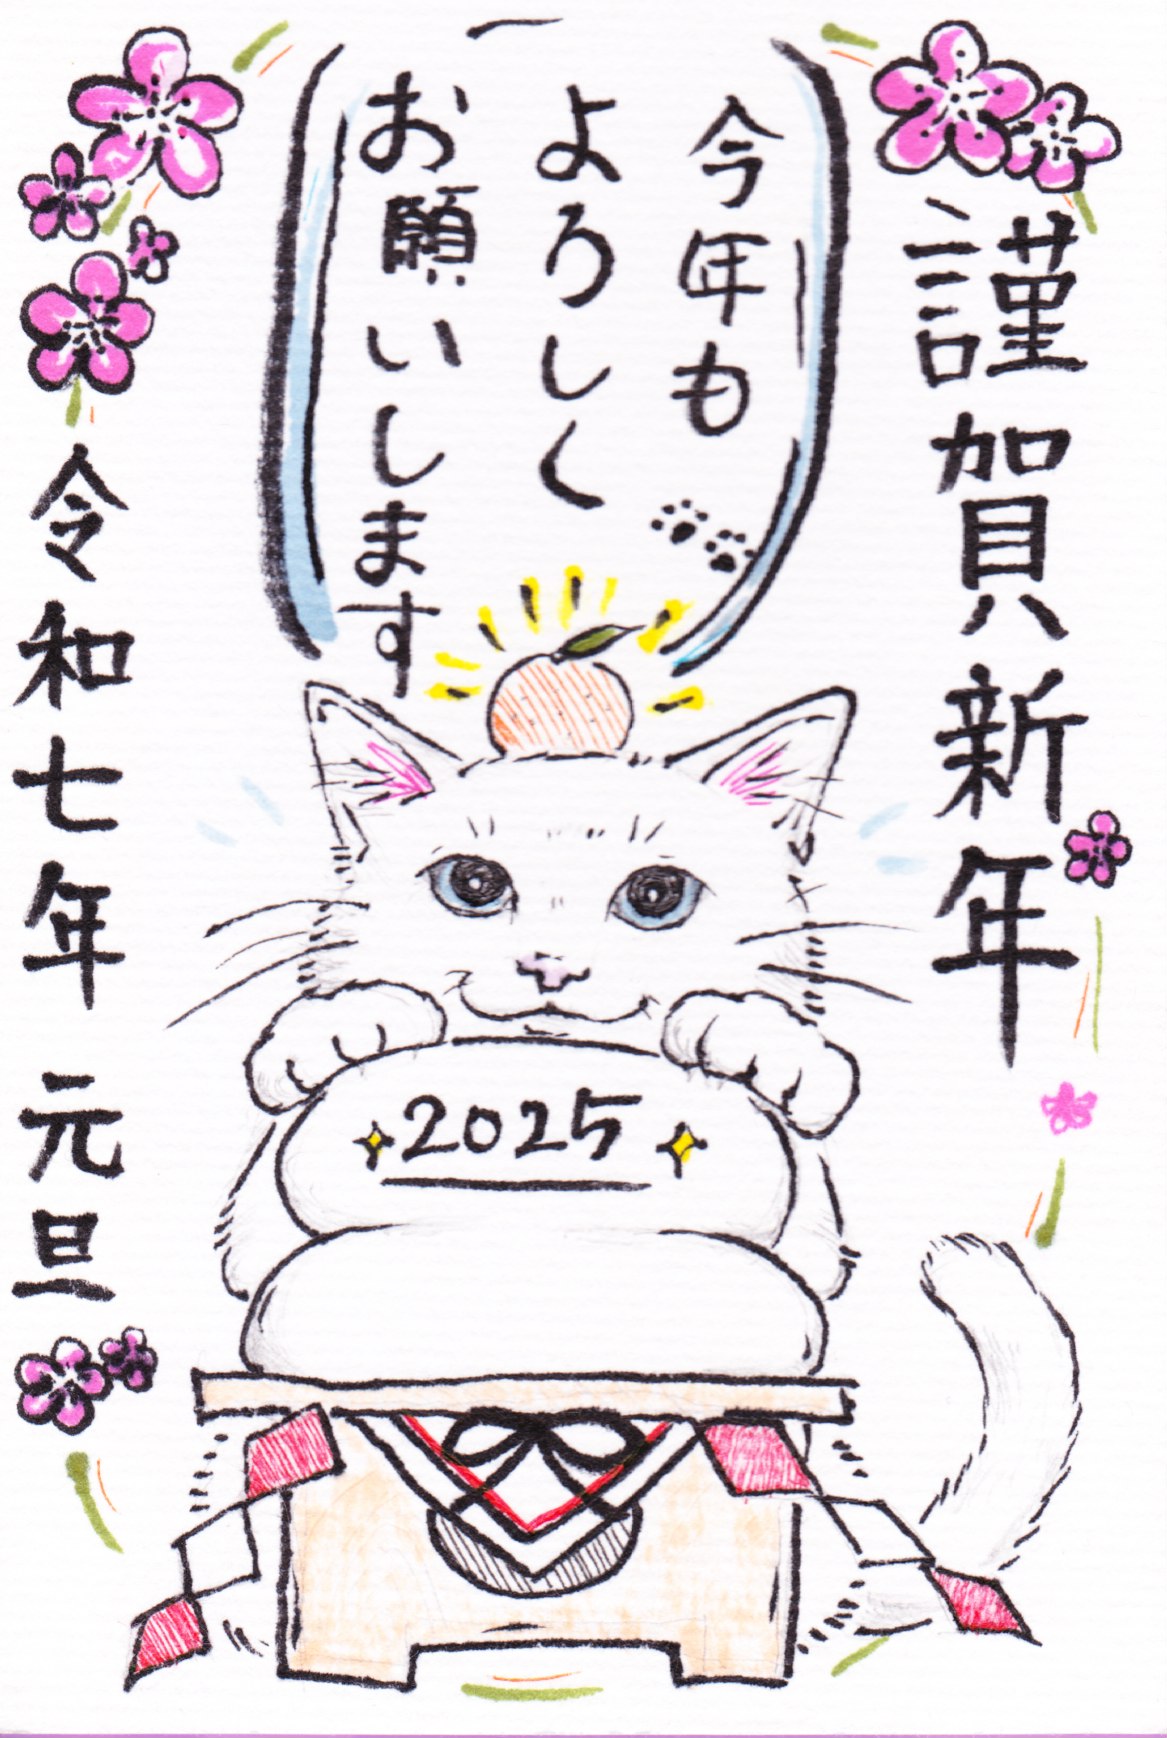 謹賀新年
今年も
よろしく
お願いします
令和七年 元旦
2025